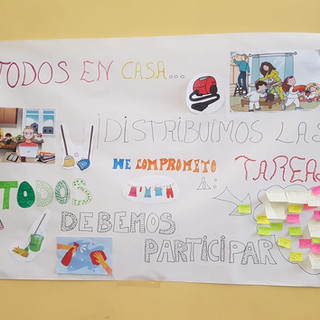 TODOS EN CASA...
¡DISTRIBUIMOS LAS
ME COMPROMETO
TAREAS
TODOS
DEBEMOS
PARTICIPAR